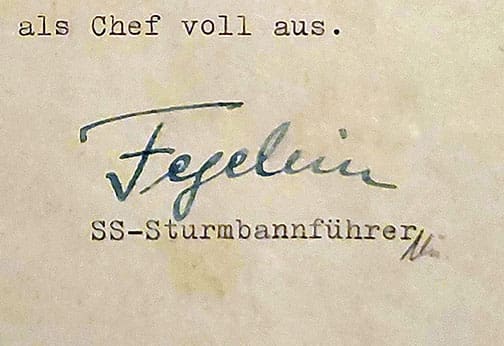 als Chef voll aus.
Fegelein
SS-Sturmbannführer